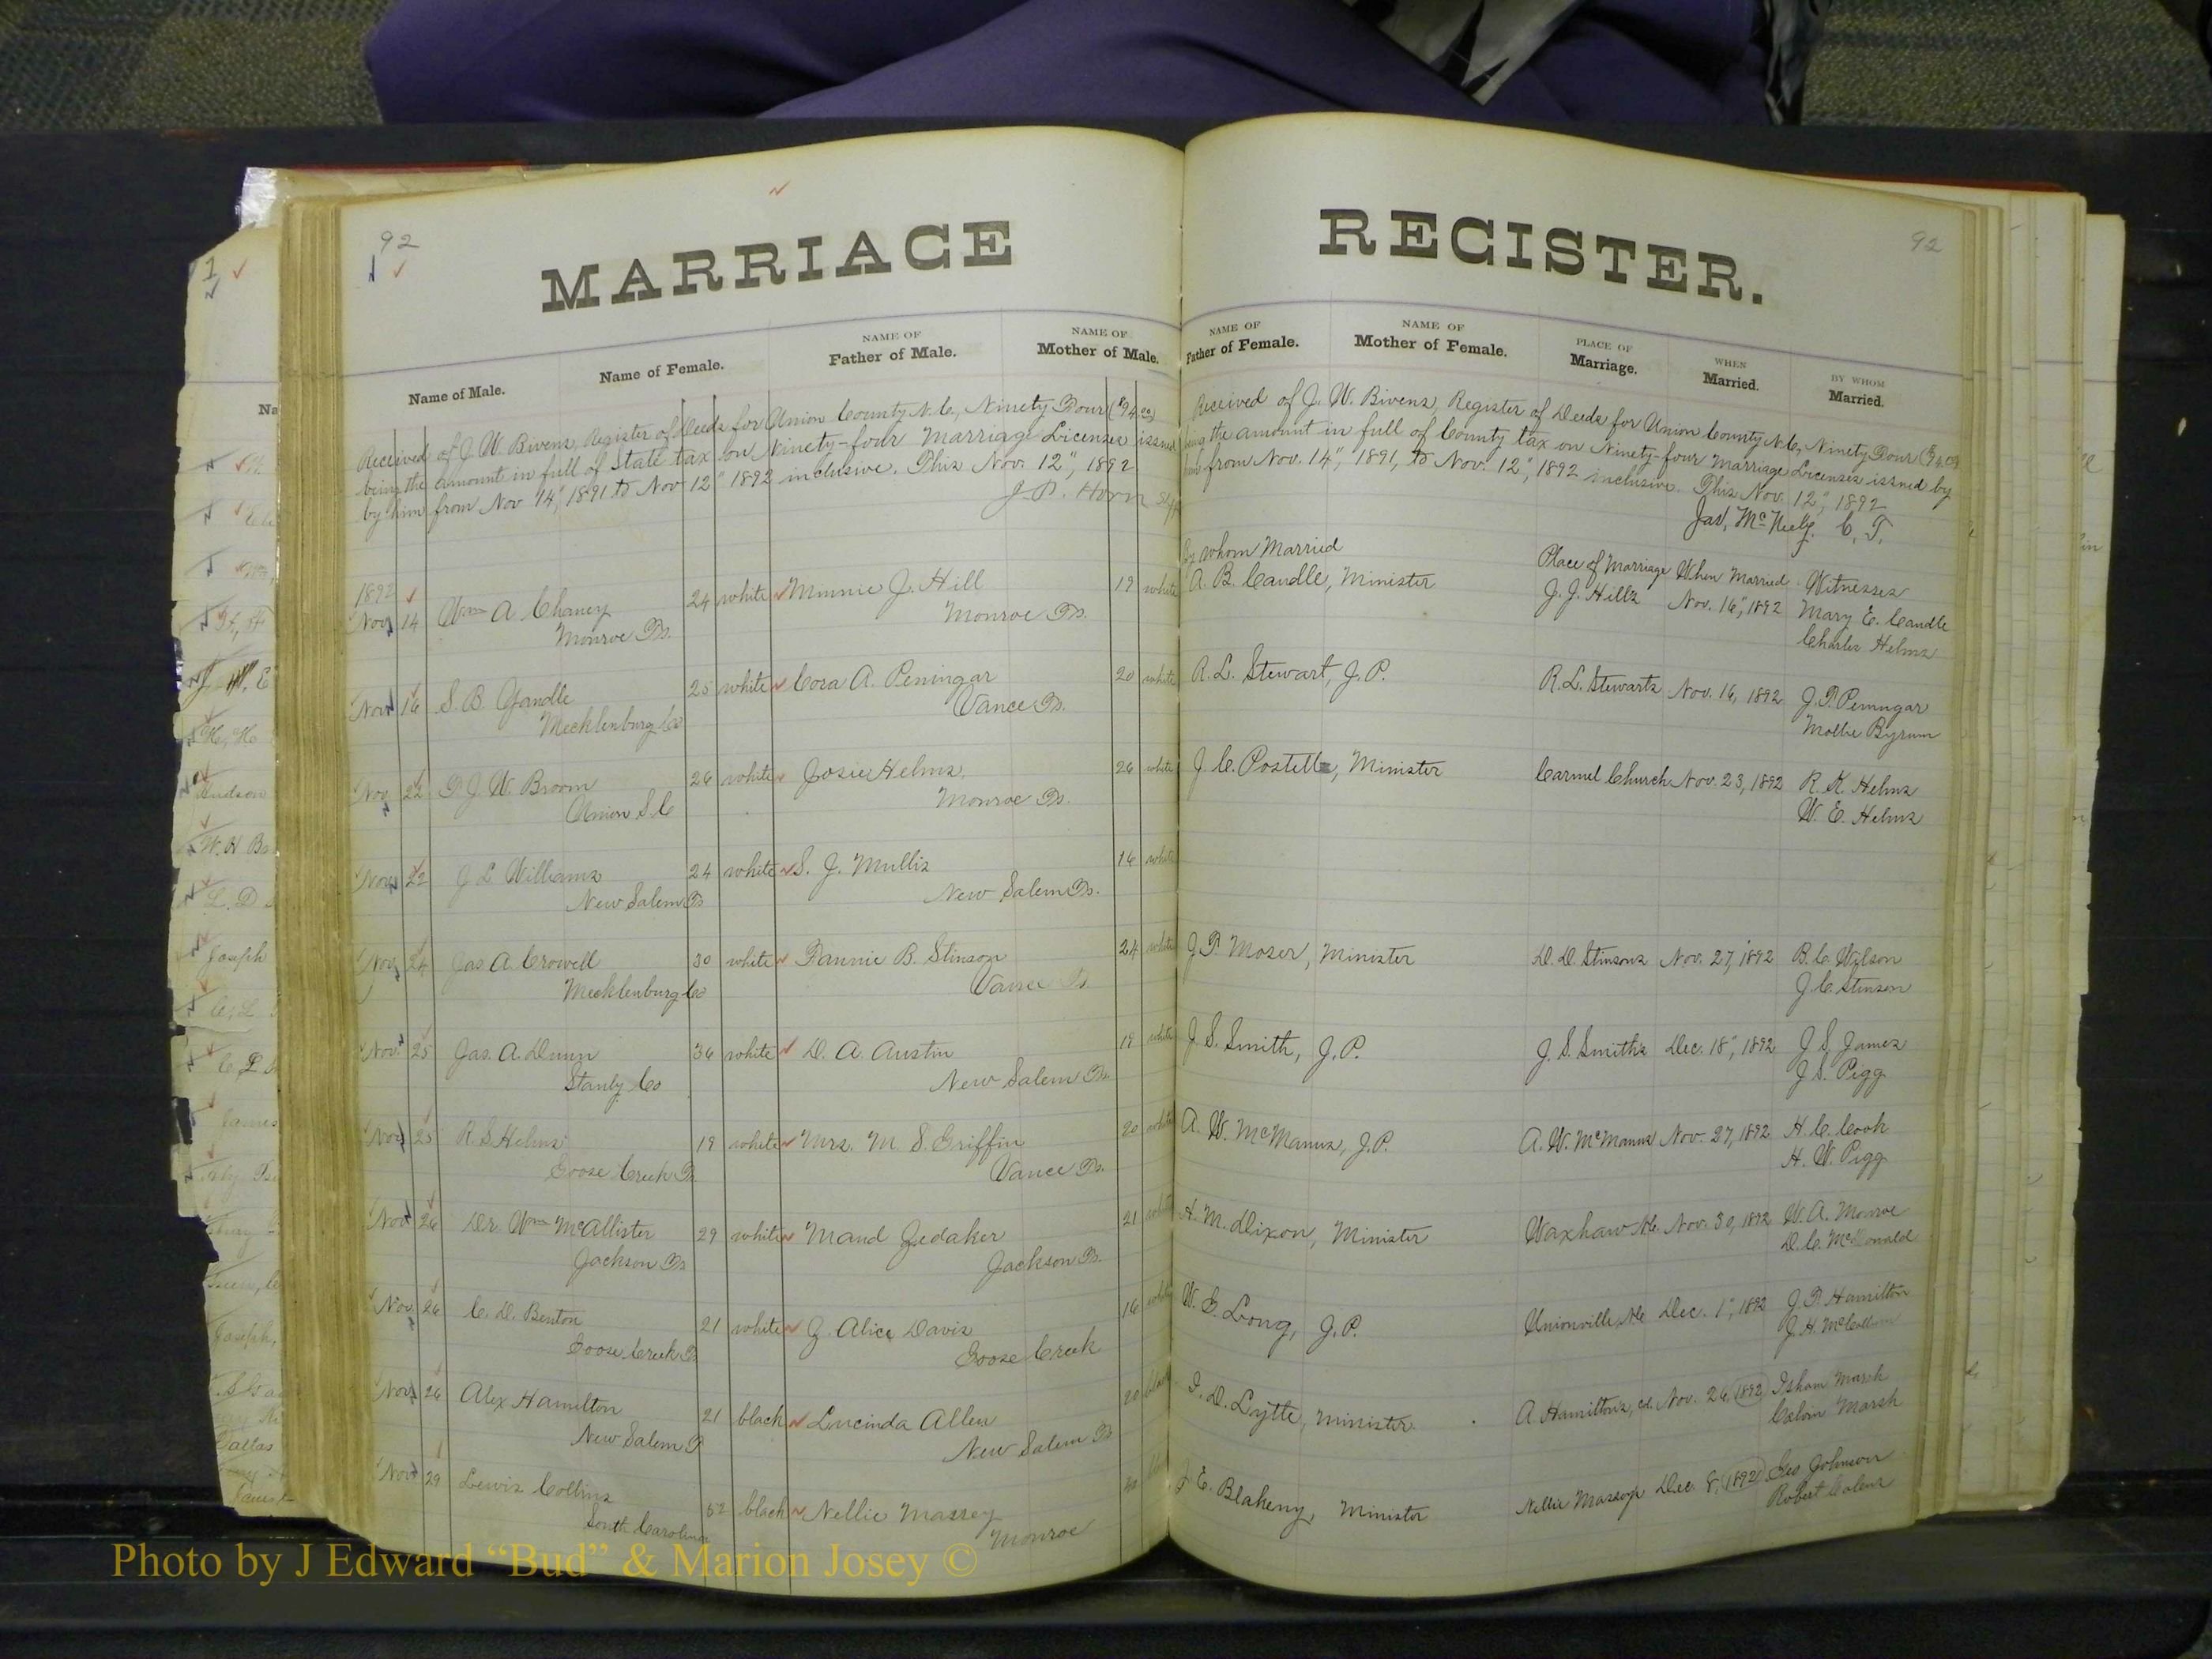 92
MARRIAGE
Name of Male.
Name of Female.
NAME OF
Father of Male.
NAME OF
Mother of Male.
Received of J. W. Bivens, Register of Deeds for Union County N.C., Ninety Four ($94.00)
being the amount in full of State tax on Ninety-four Marriage Licenses issued
by him from Nov 14", 1891 to Nov 12" 1892 inclusive. This Nov. 12", 1892
J. P. Horn
1892
Nov 14 Wm A Chaney 24 white Minnie J. Hill 19 white
Monroe Ts. Monroe Ts.
Nov 16 S. B. Yandle 25 white Cora A. Peningar 20 white
Mecklenburg Co Vance Ts.
Nov 22 T. J. W. Broom 26 white Josie Helms 26 white
Union S.C Monroe Ts.
Nov 22 J L Williams 24 white S. J. Mullis 16 white
New Salem Ts New Salem Ts.
Nov 24 Jas A. Crowell 30 white Fannie B. Stinson 24 white
Mecklenburg Co Vance Ts
Nov. 25 Jas. A. Dunn 36 white D. A. Austin 19 white
Stanly Co New Salem Ts.
Nov 25 R. S Helms 19 white Mrs. M. S. Griffin 20 white
Goose Creek Ts. Vance Ts.
Nov 26 Dr Wm McAllister 29 white Maud Zedaker 21 white
Jackson Ts Jackson Ts.
Nov. 26 C. D. Benton 21 white Z. Alice Davis 16 white
Goose Creek Ts Goose Creek
Nov. 26 Alex Hamilton 21 black Lucinda Allen 20 black
New Salem T New Salem Ts
Nov 29 Lewis Collins 52 black Nellie Massey
South Carolina Monroe
92
REGISTER.
NAME OF
Father of Female.
NAME OF
Mother of Female.
PLACE OF
Marriage.
WHEN
Married.
BY WHOM
Married.
Received of J. W. Bivens, Register of Deeds for Union County N.C., Ninety Four ($94.00)
being the amount in full of County tax on Ninety-four Marriage Licenses issued by
him from Nov. 14", 1891, to Nov. 12", 1892 inclusive. This Nov. 12", 1892
Jas. McNeely. C. T.
By whom Married Place of Marriage When Married Witnesses
A. B. Caudle, Minister J. J. Hills Nov. 16", 1892 Mary E. Caudle
Charles Helms
R. L. Stewart, J. P. R. L. Stewarts Nov. 16, 1892 J. P. Peningar
Mollie Byrum
J. C. Postell, Minister Carmel Church Nov. 23, 1892 R. K. Helms
W. E. Helms
J. P. Moser, Minister D. D. Stinsons Nov. 27, 1892 B. C. Wilson
J. C. Stinson
J. S. Smith, J. P. J. S. Smiths Dec. 18", 1892 J. S. James
J. S. Pigg
A. W. McManus, J. P. A. W. McManus Nov. 27, 1892 H. C. Cook
H. W. Pigg
H. M. Dixon, Minister Waxhaw NC. Nov. 30, 1892 W. A. Monroe
D. C. McDonald
W. G. Long, J. P. Unionville, NC Dec. 1", 1892 J. P. Hamilton
J. H.
D. Lytte, Minister. A. Hamiltons, Nov. 26, 1892 Isham Marsh
Calvin Marsh
E. Blakeny, Minister Nellie Masseys Dec. 8, 1892 Geo Johnson
Robert
Photo by J Edward “Bud” & Marion Josey ©